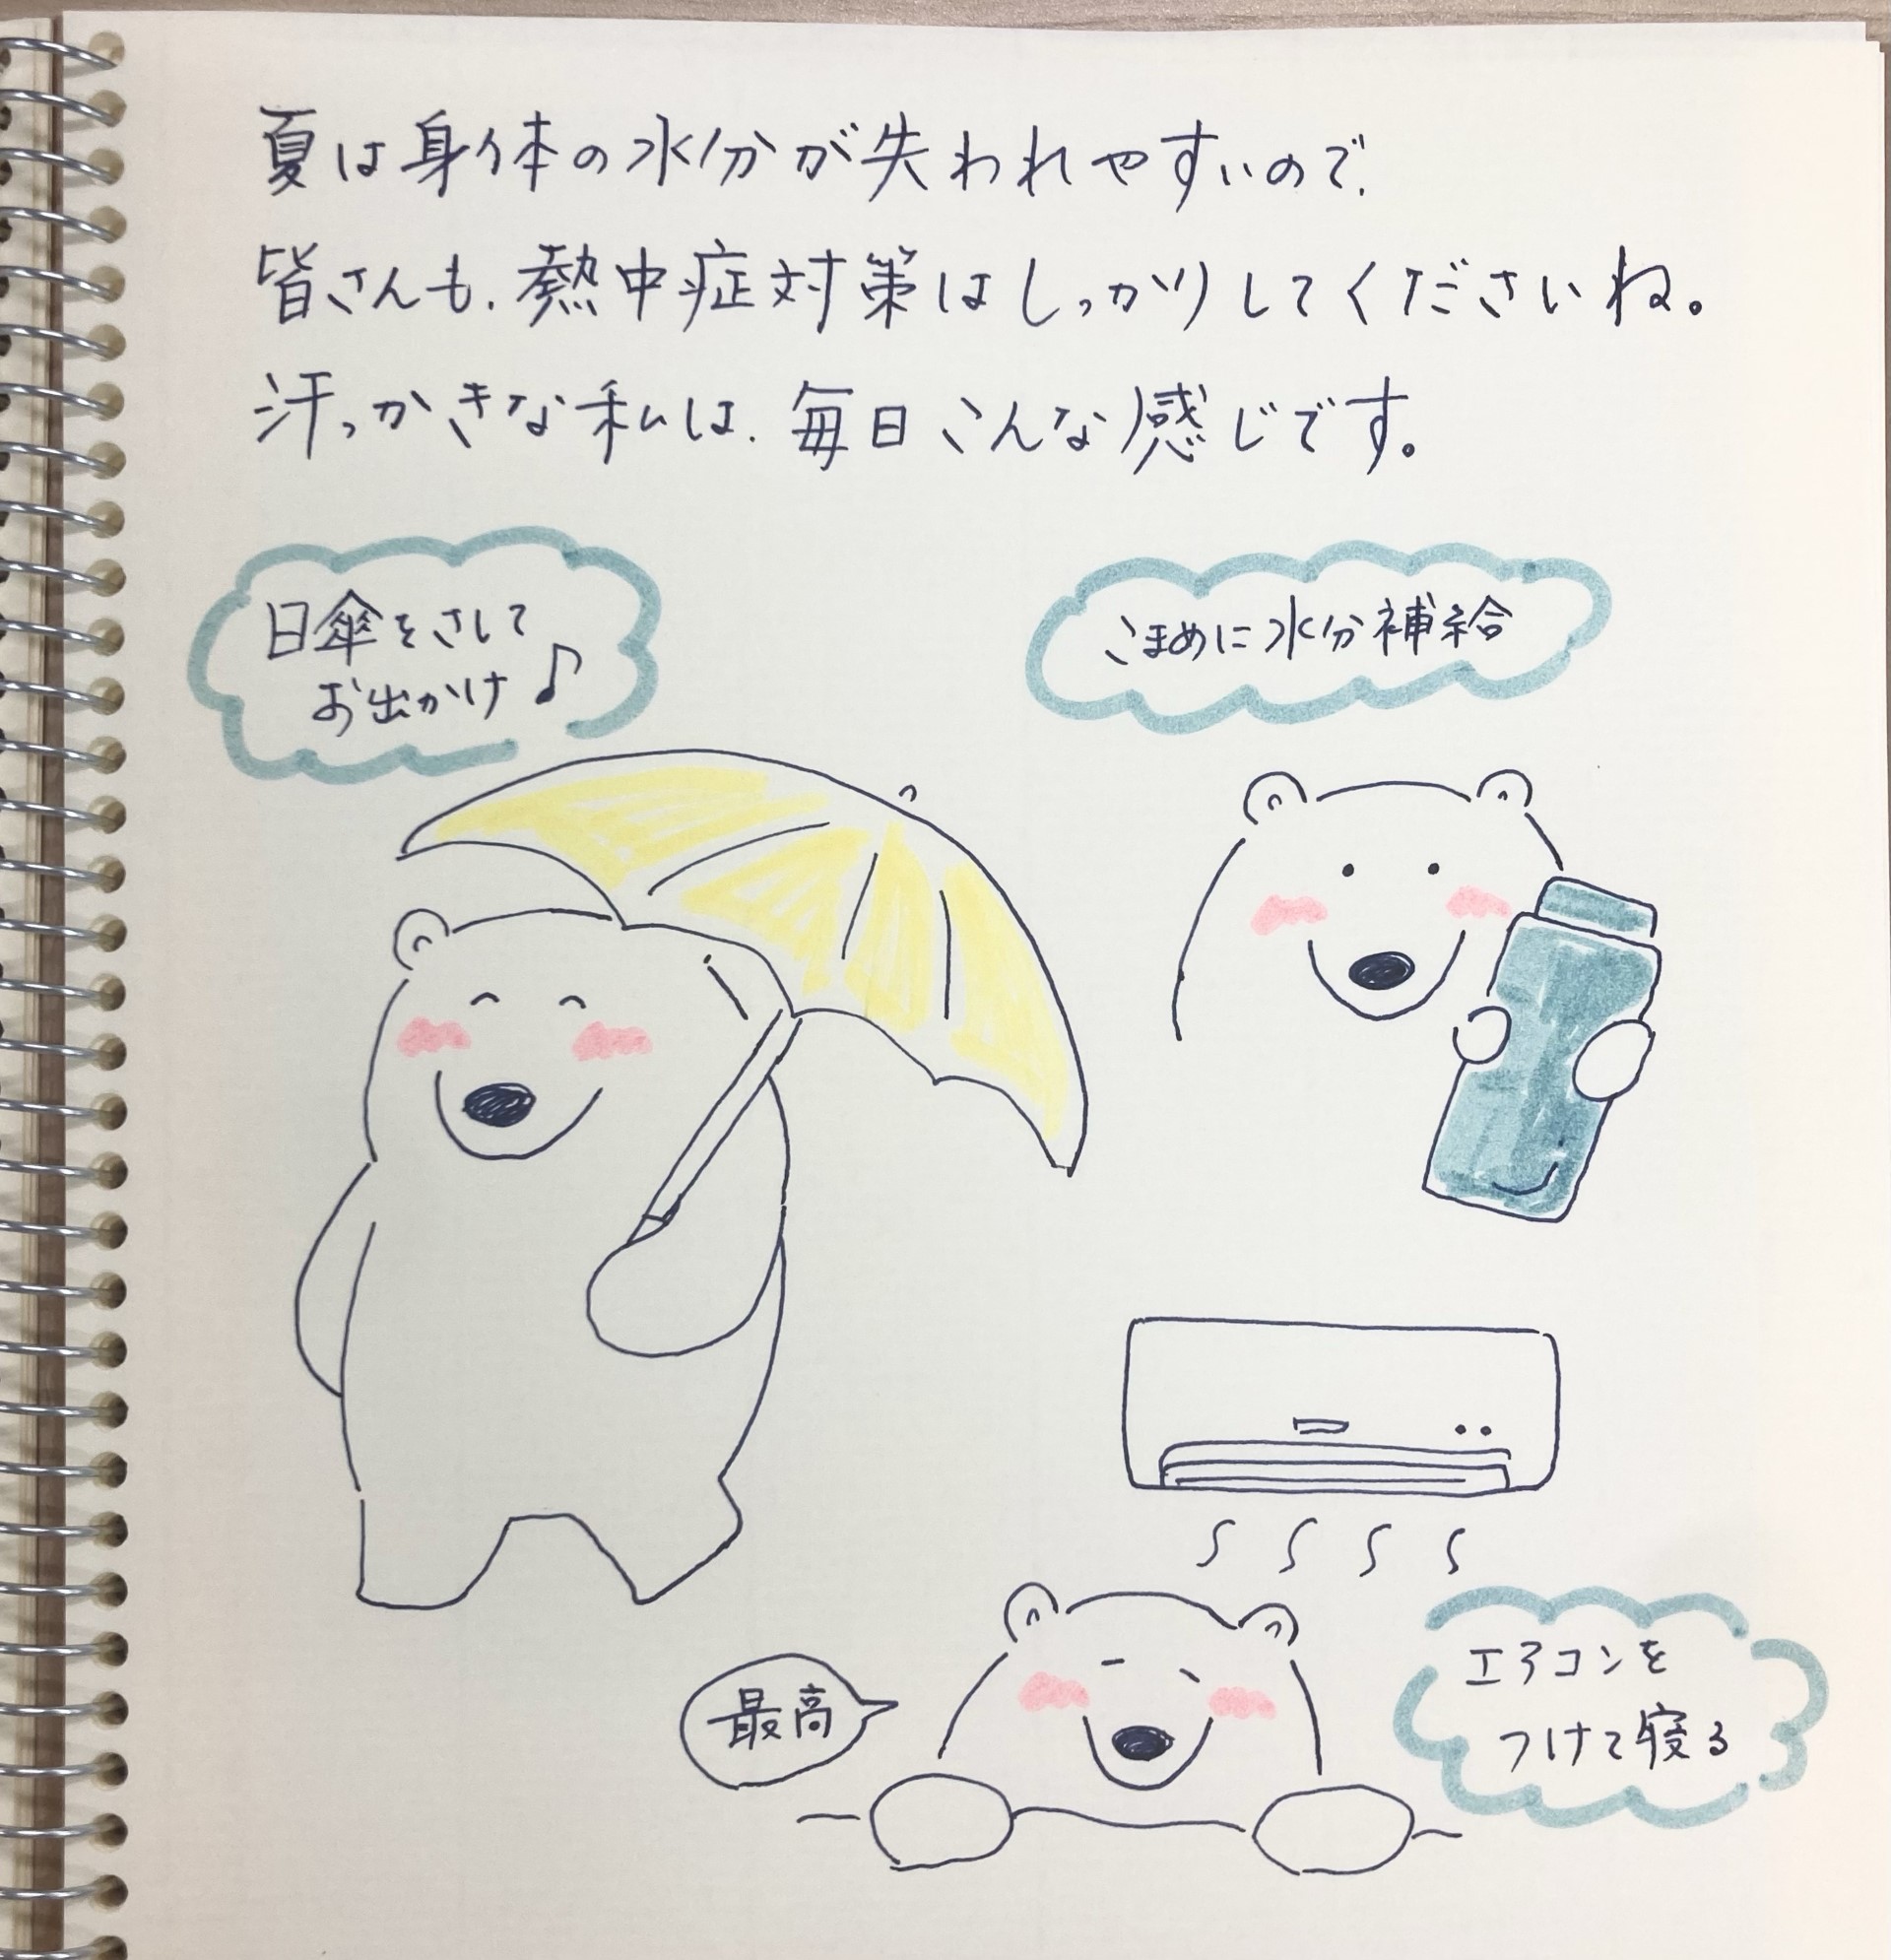 夏は身体の水分が失われやすいので、
皆さんも、熱中症対策はしっかりしてくださいね。
汗っかきな私は、毎日こんな感じです。
日傘をさして
お出かけ♪
こまめに水分補給
最高
エアコンを
つけて寝る